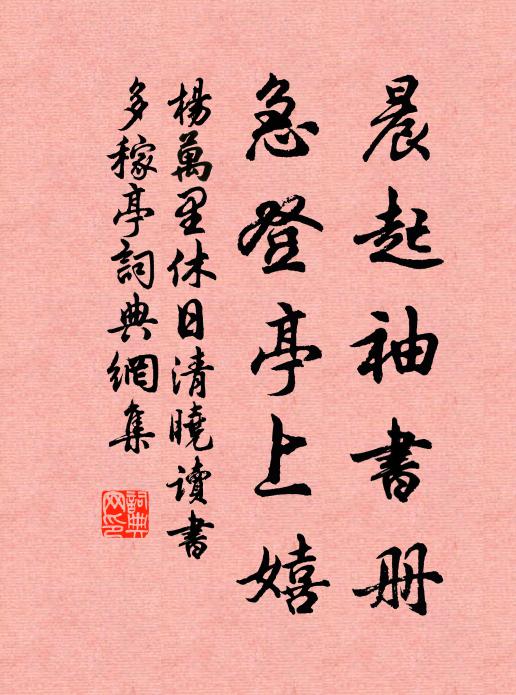 晨起袖書册
急登亭上嬉
楊萬里休日清曉讀書
多稼亭詞典網集
詞典網印